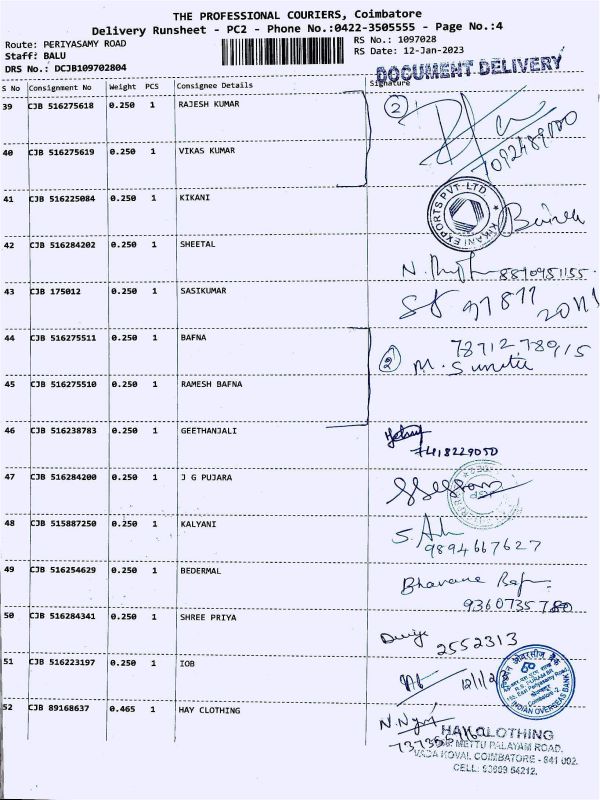 THE PROFESSIONAL COURIERS, Coimbatore
Delivery Runsheet - PC2 - Phone No.:0422-3505555 - Page No.:4
Route: PERIYASAMY ROAD
RS No.: 1097028
Staff: BALU
RS Date: 12-Jan-2023
DRS No.: DCJB109702804
DOCUMENT DELIVERY
S No Consignment No Weight PCS Consignee Details Signature
39 CJB 516275618 0.250 1 RAJESH KUMAR 2
40 CJB 516275619 0.250 1 VIKAS KUMAR
41 CJB 516225084 0.250 1 KIKANI
KIKANI EXPORTS PVT-LTD
42 CJB 516284202 0.250 1 SHEETAL
43 CJB 175012 0.250 1 SASIKUMAR
44 CJB 516275511 0.250 1 BAFNA
2 M. Sunitha
45 CJB 516275510 0.250 1 RAMESH BAFNA
46 CJB 516238783 0.250 1 GEETHANJALI
7418229050
47 CJB 516284200 0.250 1 J G PUJARA
48 CJB 515887250 0.250 1 KALYANI
9894667627
49 CJB 516254629 0.250 1 BEDERMAL
50 CJB 516284341 0.250 1 SHREE PRIYA
2552313
51 CJB 516223197 0.250 1 IOB
INDIAN OVERSEAS BANK
52 CJB 89168637 0.465 1 HAY CLOTHING
HAY CLOTHING
METTU PALAYAM ROAD.
VADA KOVAI, COIMBATORE - 641 002.